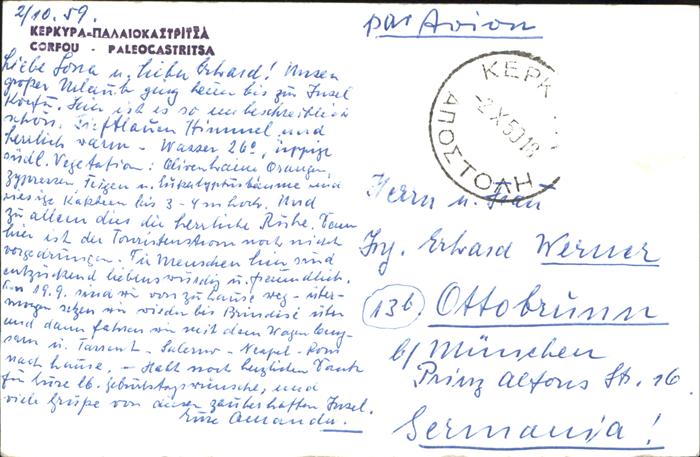 2/10. 59.
ΚΕΡΚΥΡΑ-ΠΑΛΑΙΟΚΑΣΤΡΙΤΣΑ
CORFOU - PALEOCASTRITSA
Liebe Lossa u. lieber Erhard! Unser
großer Urlaub ging heuer bis zur Insel
Korfu. Hier ist es so unbeschreiblich
schön. Tiefblauen Himmel und
herrlich warm - Wasser 26°, üppige
südl. Vegetation: Olivenhaine Orangen,
Zypressen, Feigen u. Eukalyptusbäume und
riesige Kakteen bis 3-4 m hoch. Und
zu allem dies die herrliche Ruhe. Denn
hier ist der Touristenstrom noch nicht
vorgedrungen. Die Menschen hier sind
entzückend liebenswürdig u. freundlich.
Am 19.9. sind wir von zuhause weg - über-
morgen setzen wir wieder bis Brindisi über
und dann fahren wir mit dem Wagen lang-
sam ü. Tarrent - Salerno - Neapel - Rom
nach hause. - Habt noch herzlichen Dank
für Eure lb. Geburtstagswünsche, und
viele Grüße von dieser zauberhaften Insel.
Eure Amanda.
par Avion
ΚΕΡΚ
-2 X 59 18
ΑΠΟΣΤΟΛΗ
Herrn u. Frau
Ing. Erhard Werner
13b Ottobrunn
b/ München
Prinz Alfons Str. 16
Germania!